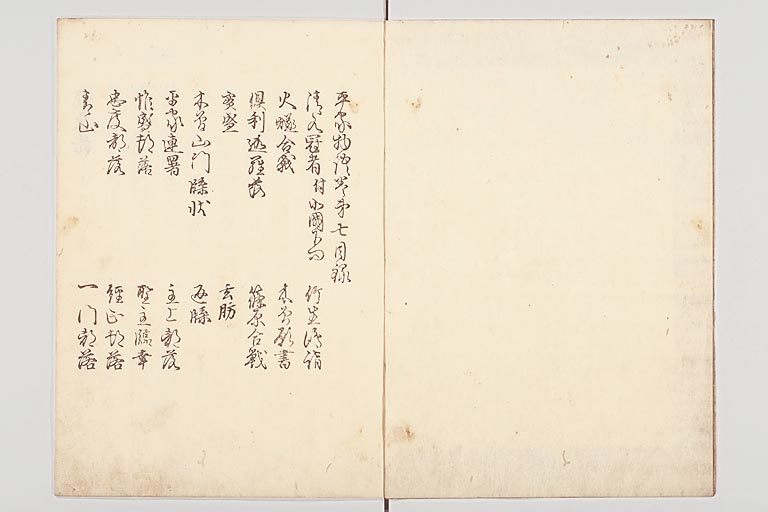 平家物語巻第七目録
清水冠者付北國下向 竹生嶋詣
火燧合戦 木曽願書
倶利迦羅落 篠原合戦
実盛 玄肪
木曽山門牒状 返牒
平家連署 主上都落
惟盛都落 聖主臨幸
忠度都落 經正都落
青山 一門都落